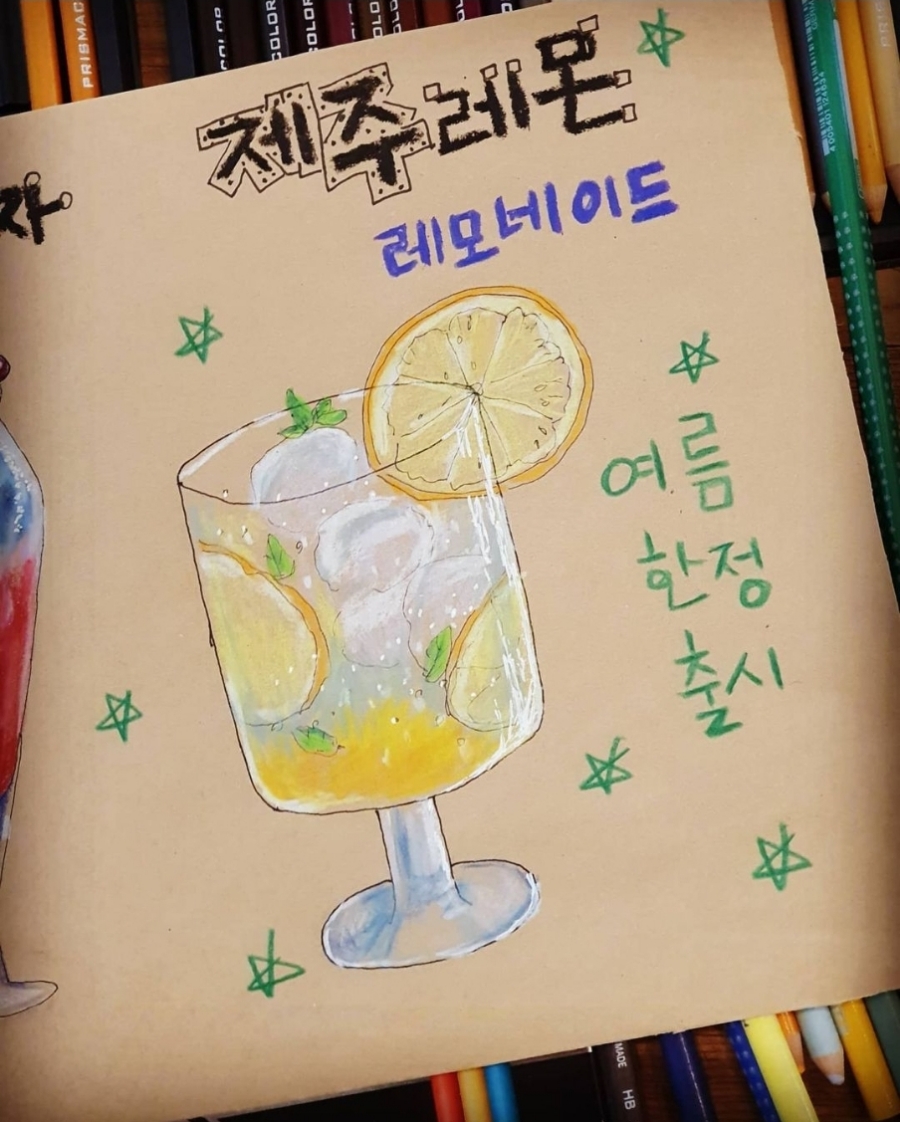 제주레몬
레모네이드
자
여름
한정
출시
PRISMAC
COLOR
COLOR
COLOR
4005401124634
MADE
HB